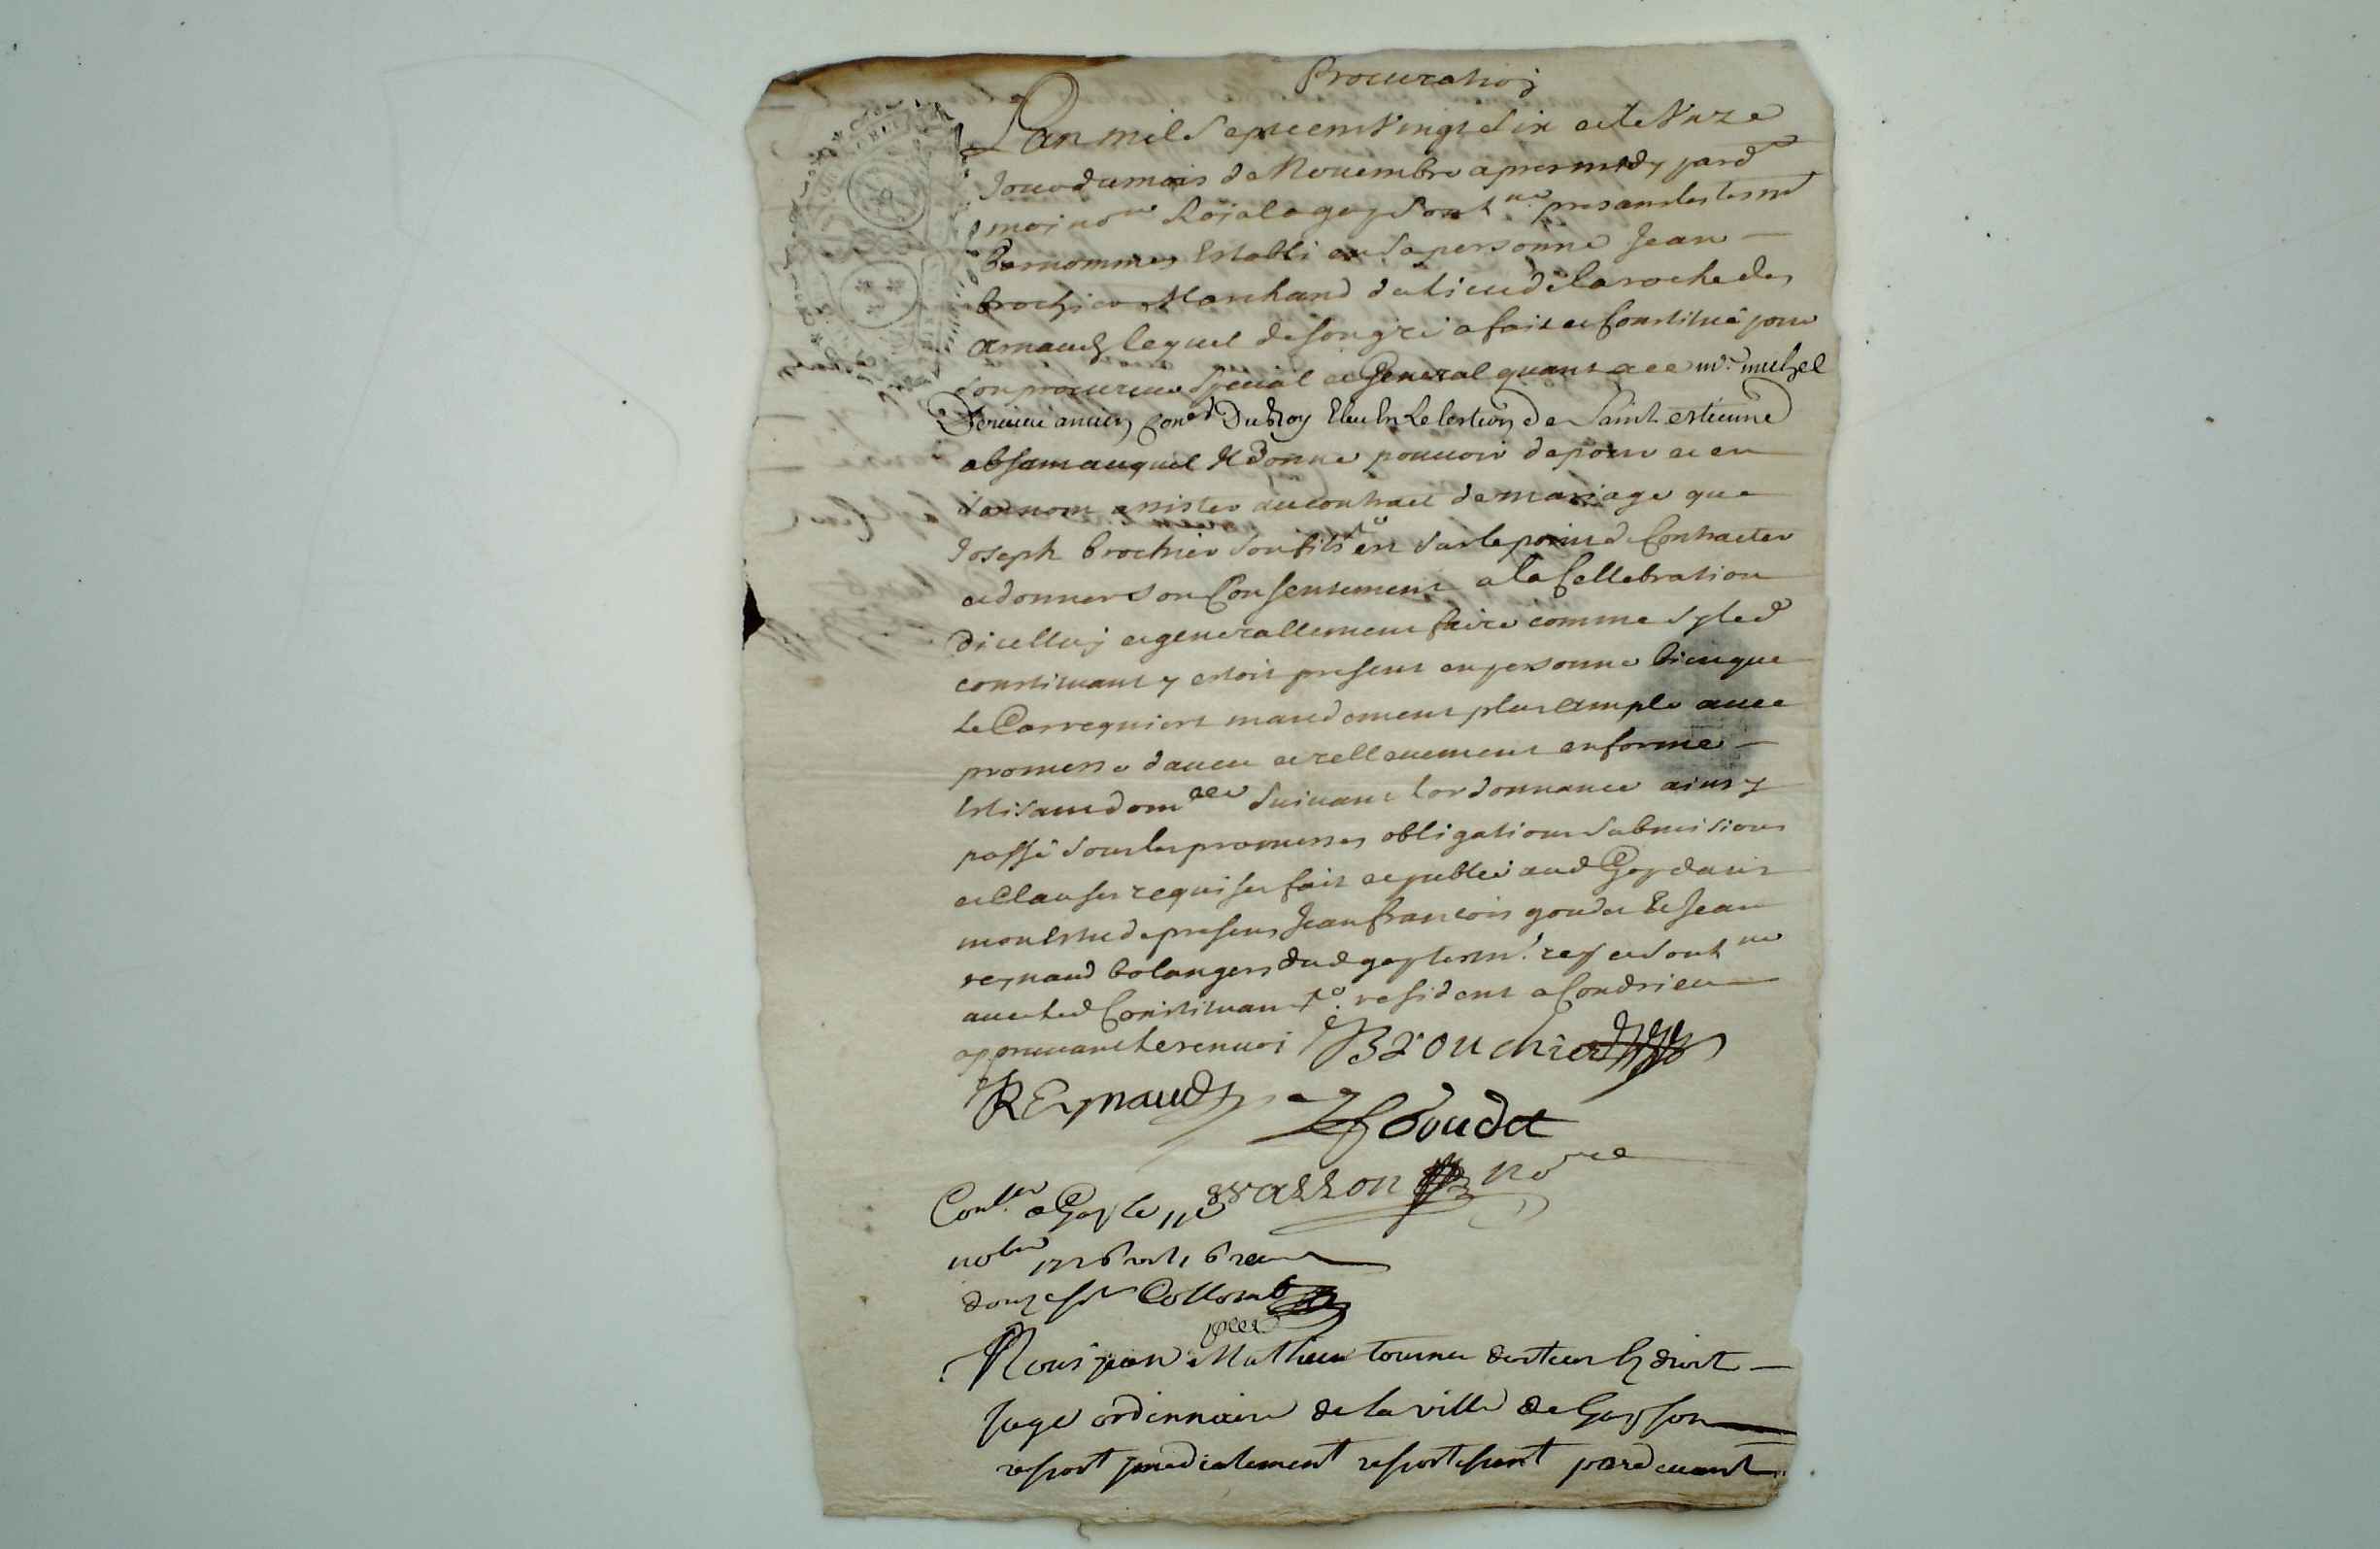 Procuration
Lan mil sept cent vingt six et le unze
Jour du mois de Novembre apres midy pard
moi no.re Roial a gap sout.ne presans les tesm.
bas nommes Establi en sa personne Jean
brochier Marchand du lieu de la roche des
arnauds lequel de son gre a fait et constitué pour
son procureur special et General quant a ce m.e michel
ancien Con.er Du Roy Eleu En Lelection de Saint estienne
absant auquel Il donne pouvoir de pour et en
son nom assister au contract de mariage que
Joseph brochier son fils est sur le point de Contracter
et donner son Consentement a la Cellebration
dicelluy et generallement faire comme sy led
constituant y estoit present en personne bien que
le Cas requiert mandement plus ample avec
promesse daveu et rellevement en forme
suivant lordonnance ainsy
passé sous les promesses obligations submissions
et Clauses requises fait et publié aud Gap dans
mon Estude presens Jean francois goudet Et Jean
reynaud bolangers dud gap tesm.s req et sout.nes
avec led Constituant resident a Condrieu
approuvant le renvoi Brouchier
REynaud Jf Goudet
vallon no.re
Conll.e a Gap le 11e
no.bre 1726
douze sols Collomb
Nous jean Mathieu tournu docteur En droit
Juge ordinnaire de la ville de Gap son
resort jmediatement resortissant pardevant